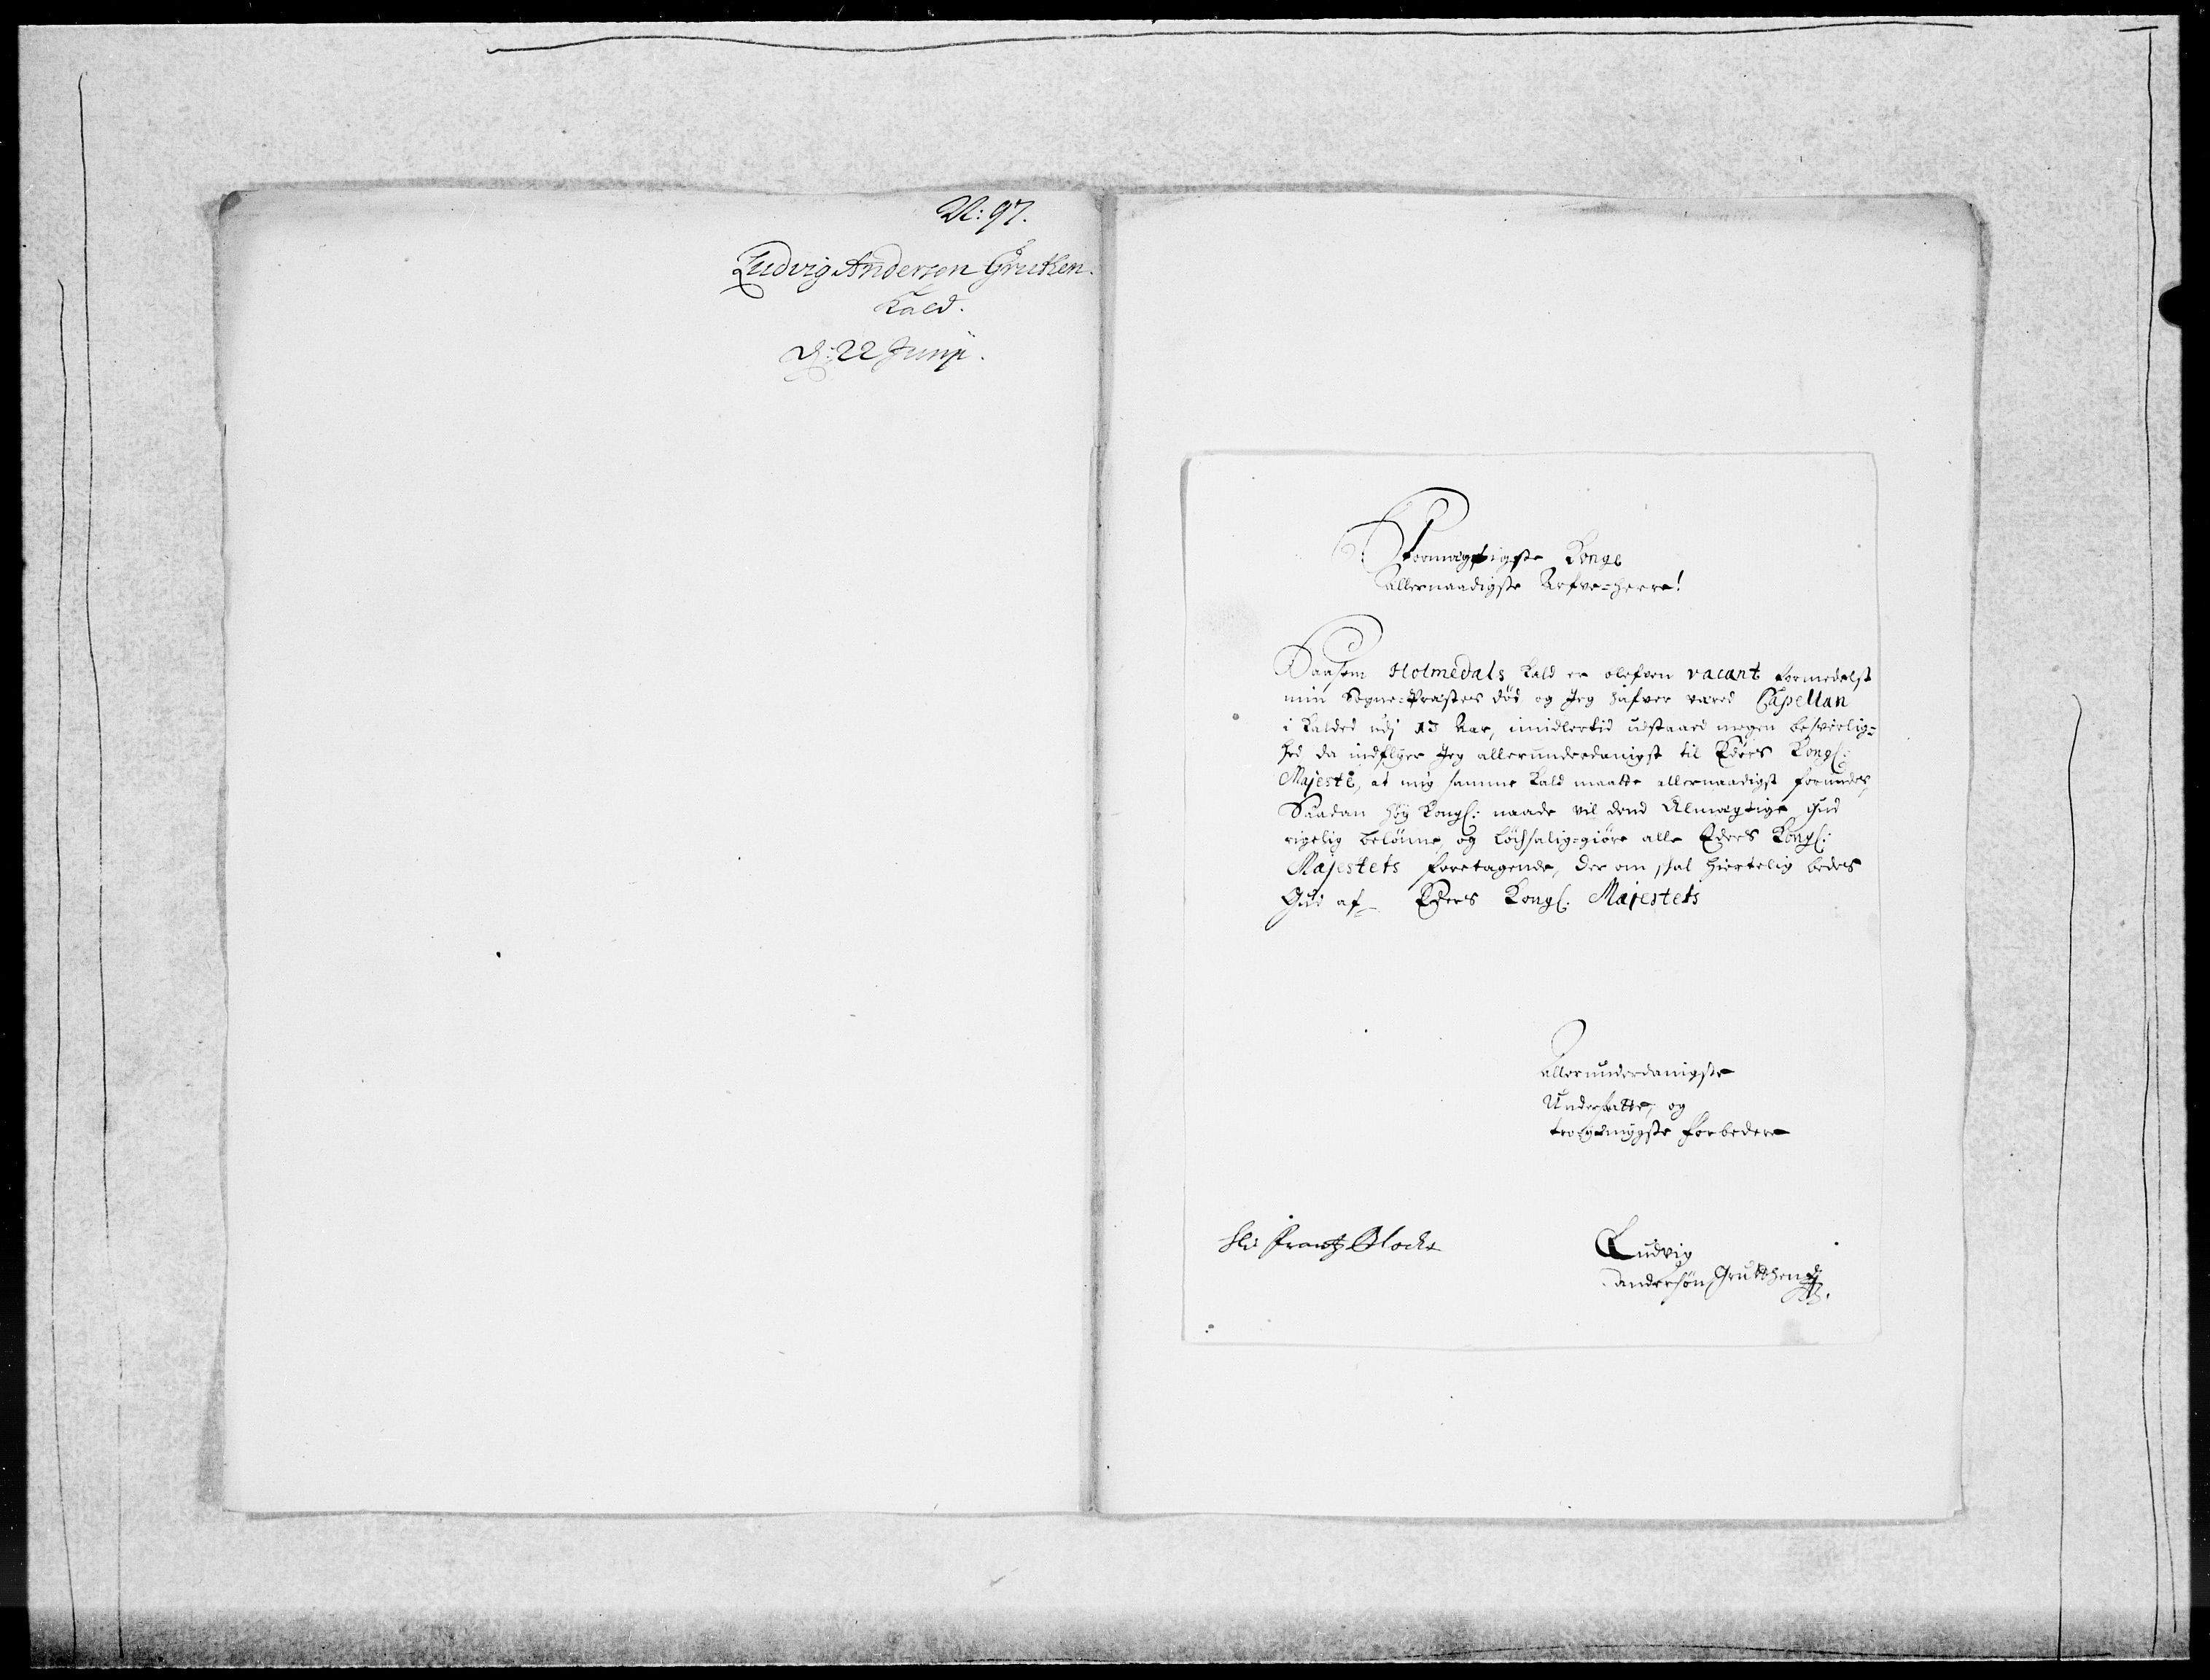 N: 97.
Ludvig Anderson Grutken.
Kald.
d: 22 Junij.
Stormægtigste Konge
Allernaadigste Arfve-Herre!
Saasom Holmedals Kald er blefven vacant formedelst
min Sogne-Præstes död, og Jeg hafver væred Capellan
i Kalded udj 13 Aar, imidlertid udstaaed megen besværlig-
hed da indflyer Jeg allerunderdanigst til Eders Kongl:
Majestè, at mig samme Kald maatte allernaadigst forundes,
Saadan höy Kongl: naade vil dend Almægtige Gud
rigelig belönne, og löchsalig-giöre alle Eders Kongl:
Majestets foretagende, der om skal hiertelig bedes
Gud af Eders Kongl: Majestets
Allerunderdanigste
Undersatte, og
troeydmygste forbedere
Frantz Blocks
Ludvig
Andersön Grutthen